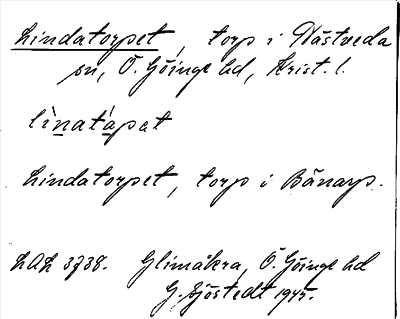 Lindatorpet, torp i Nästveda
sn, Ö. Göinge hd, Krist. l.
lìnatápət
Lindatorpet, torp i Bänarp.
LAL 3738. Glimåkra, Ö. Göinge hd
G. Sjöstedt 1945.